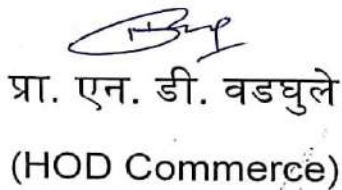 प्रा. एन. डी. वडघुले
(HOD Commerce)